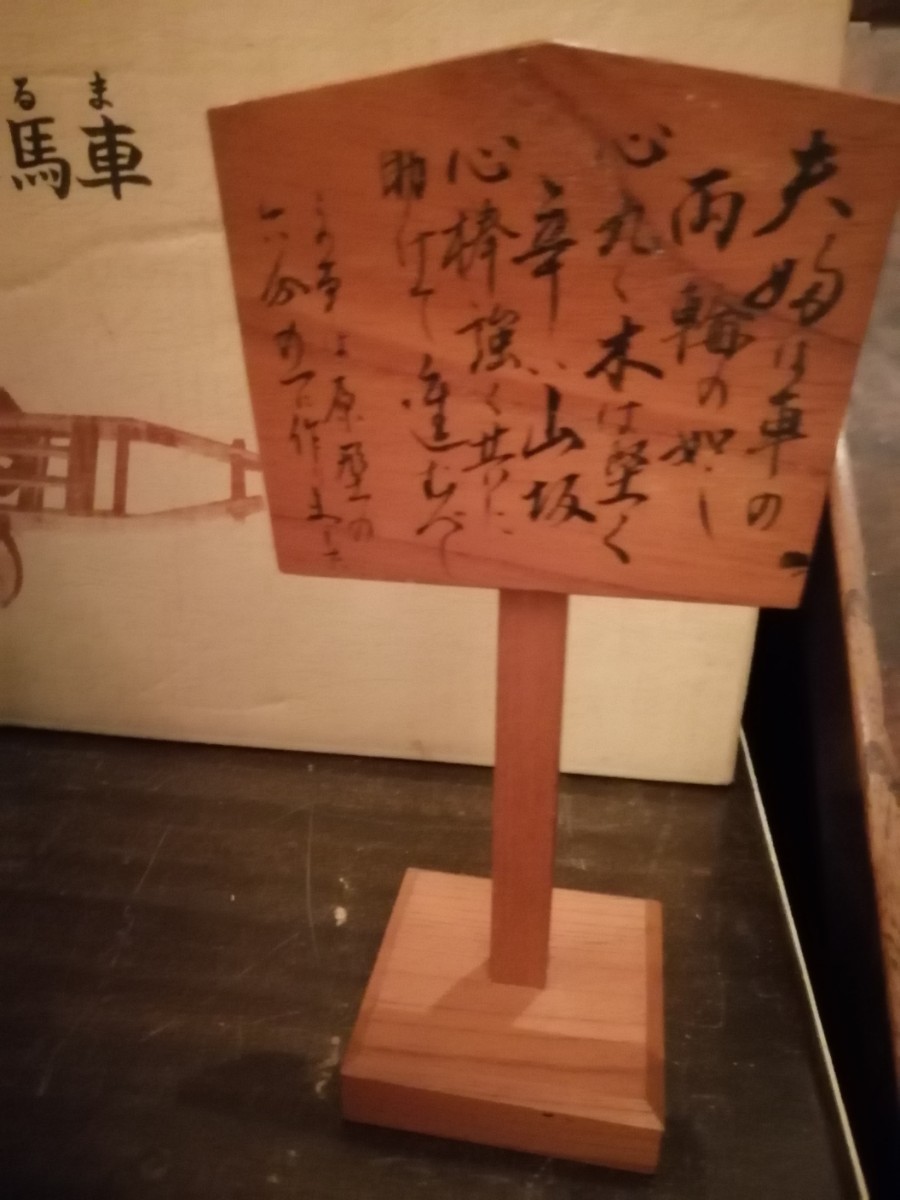 夫婦は車の
両輪の如し
心丸く木は堅く
辛い山坂
心棒強く共に
助けて進むべし
この車は原型の
六分の一に作しました
馬車
るま